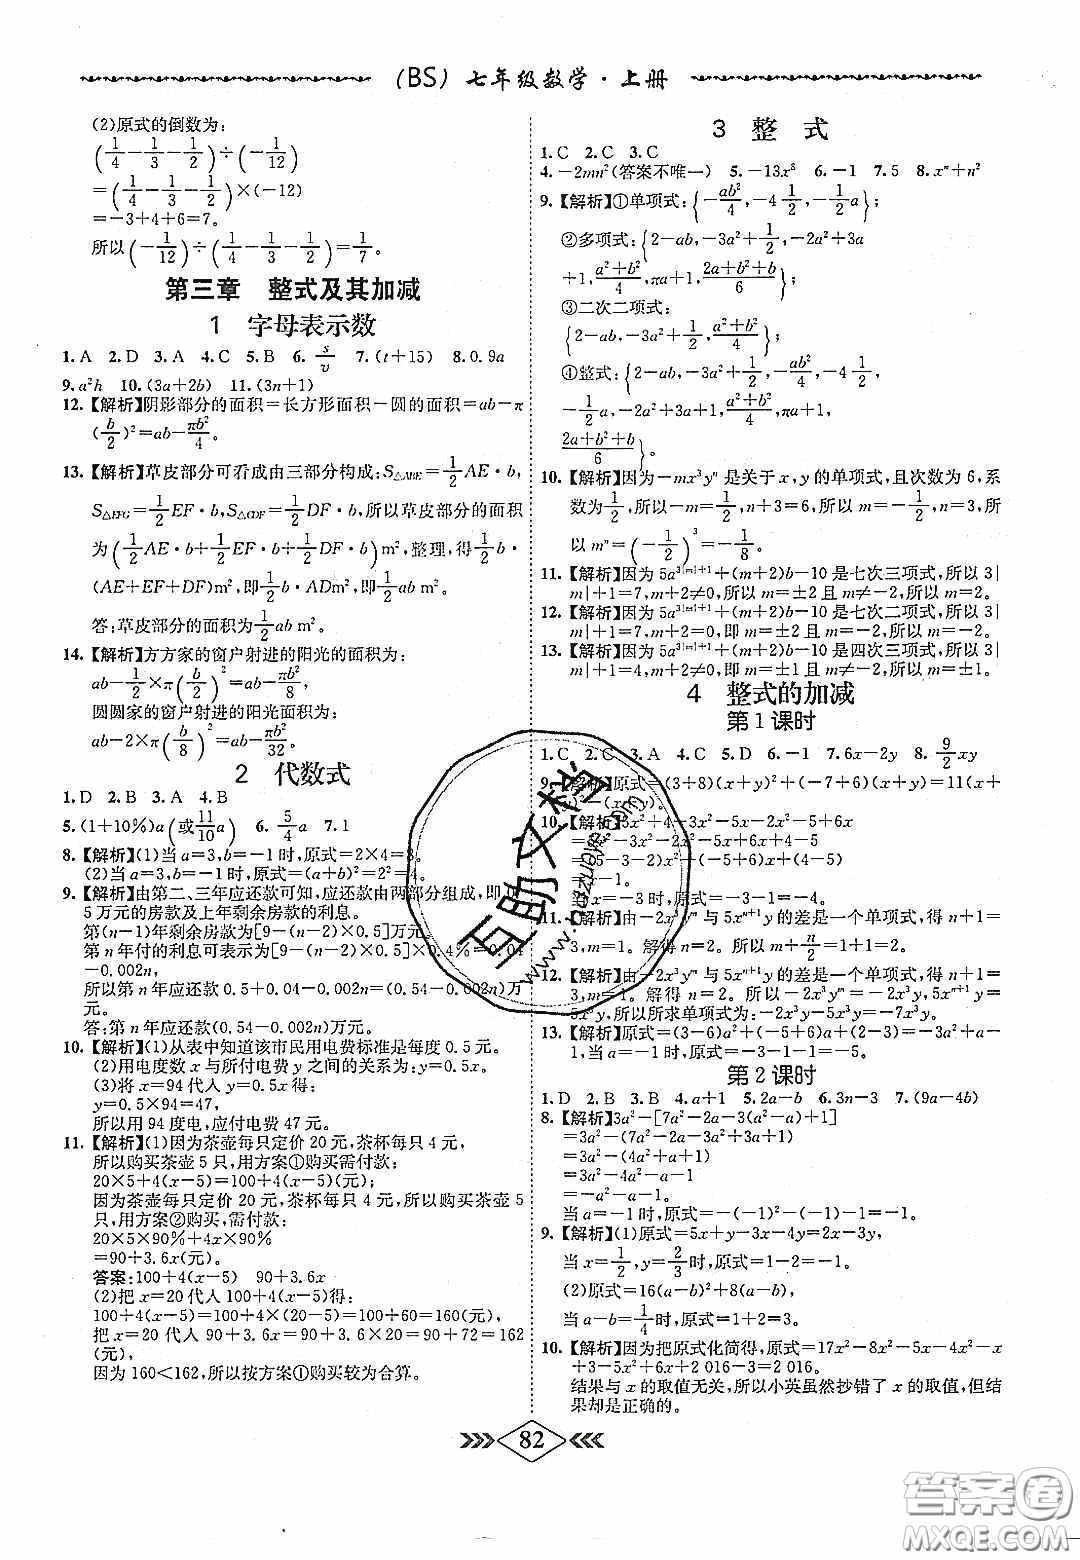 (BS) 七年级数学·上册
(2)原式的倒数为:
(1/4-1/3-1/2)÷(-1/12)
=(1/4-1/3-1/2)×(-12)
=-3+4+6=7。
所以(-1/12)÷(1/4-1/3-1/2)=1/7。
第三章 整式及其加减
1 字母表示数
1. A 2. D 3. A 4. C 5. B 6. s/v 7. (t+15) 8. 0.9a
9. a²h 10. (3a+2b) 11. (3n+1)
12.【解析】阴影部分的面积=长方形面积-圆的面积=ab-π
(b/2)²=ab-πb²/4。
13.【解析】草皮部分可看成由三部分构成:S△ABE=1/2AE·b,
S△EFG=1/2EF·b,S△CDF=1/2DF·b,所以草皮部分的面积
为(1/2AE·b+1/2EF·b+1/2DF·b)m²,整理,得1/2b·
(AE+EF+DF)m²,即1/2b·ADm²,即1/2abm²。
答:草皮部分的面积为1/2ab m²。
14.【解析】方方家的窗户射进的阳光的面积为:
ab-1/2×π(b/2)²=ab-πb²/8,
圆圆家的窗户射进的阳光面积为:
ab-2×π(b/8)²=ab-πb²/32。
2 代数式
1. D 2. B 3. A 4. B
5. (1+10%)a(或11/10a) 6. 5/4a 7. 1
8.【解析】(1)当a=3,b=-1时,原式=2×4=8。
(2)当a=3,b=-1时,原式=(a+b)²=2²=4。
9.【解析】由第二、三年应还款可知,应还款由两部分组成,即0.
5万元的房款及上年剩余房款的利息。
第(n-1)年剩余房款为[9-(n-2)×0.5]万元
第n年付的利息可表示为[9-(n-2)×0.5]×0.4%=0.04
-0.002n,
所以第n年应还款0.5+0.04-0.002n=(0.54-0.002n)万
元。
答:第n年应还款(0.54-0.002n)万元。
10.【解析】(1)从表中知道该市民用电费标准是每度0.5元。
(2)用电度数x与所付电费y之间的关系为:y=0.5x。
(3)将x=94代人y=0.5x得:
y=0.5×94=47,
所以用94度电,应付电费47元。
11.【解析】(1)因为茶壶每只定价20元,茶杯每只4元,
所以购买茶壶5只,用方案①购买需付款:
20×5+4(x-5)=100+4(x-5)(元);
因为茶壶每只定价20元,茶杯每只4元,所以购买茶壶5
只,用方案②购买,需付款:
20×5×90%+4x×90%
=90+3.6x(元)。
答案:100+4(x-5) 90+3.6x
(2)把x=20代人100+4(x-5)得:
100+4(x-5)=100+4×(20-5)=100+60=160(元),
把x=20代人90+3.6x=90+3.6×20=90+72=162
(元),
因为160<162,所以按方案①购买较为合算。
3 整 式
1. C 2. C 3. C
4. -2mn²(答案不唯一) 5. -13x⁸ 6. -1 7. 5 8. xⁿ+n²
9.【解析】①单项式:{-ab²/4,-4 1/2,-1/2a};
②多项式:{2-ab,-3a²+1/2,-2a²+3a
+1,(a²+b²)/4,πa+1,(2a+b²+b)/6};
③二次二项式:
{2-ab,-3a²+1/2,(a²+b²)/4};
④整式:{2-ab,-3a²+1/2,-ab²/4,-4 1/2,
-1/2a,-2a²+3a+1,(a²+b²)/4,πa+1,
(2a+b²+b)/6}。
10.【解析】因为-mx³yⁿ是关于x,y的单项式,且次数为6,系
数为1/2,所以-m=1/2,n+3=6,所以m=-1/2,n=3,所
以mⁿ=(-1/2)³=-1/8。
11.【解析】因为5a^(3|m|+1)+(m+2)b-10是七次三项式,所以3|
m|+1=7,m+2≠0,所以m=±2且m≠-2,所以m=2。
12.【解析】因为5a^(3|m|+1)+(m+2)b-10是七次二项式,所以3|
m|+1=7,m+2=0,即m=±2且m=-2,所以m=-2。
13.【解析】因为5a^(3|m|+1)+(m+2)b-10是四次三项式,所以3|
m|+1=4,m+2≠0,即m=±1且m≠-2,所以m=±1。
4 整式的加减
第1课时
1. C 2. C 3. A 4. C 5. D 6. -1 7. 6x-2y 8. 9/2xy
9.【解析】原式=(3+8)(x+y)²+(-7+6)(x+y)=11(x
+y)²-(x+y)。
10.【解析】3x²+4-3x²-5x-2-5+6x
-5x+6x+4-5
(-5+6)x+(4-5)
=x-1。
当x=-3时,原式=-3-1=-4。
11.【解析】由-2x³yᵐ与5xⁿ⁺¹y的差是一个单项式,得n+1=
3,m=1。解得n=2。所以m+n/2=1+1=2。
12.【解析】由-2x³yᵐ与5xⁿ⁺¹y的差是一个单项式,得n+1=
3,m=1。解得n=2。所以-2x³yᵐ=-2x³y,5xⁿ⁺¹y=
5x³y,所以所求单项式为:-2x³y-5x³y=-7x³y。
13.【解析】原式=(3-6)a²+(-5+6)a+(2-3)=-3a²+a-
1,当a=-1时,原式=-3-1-1=-5。
第2课时
1. D 2. B 3. B 4. a+1 5. 2a-b 6. 3n-3 7. (9a-4b)
8.【解析】3a²-[7a²-2a-3(a²-a)+1]
=3a²-(7a²-2a-3a²+3a+1)
=3a²-(4a²+a+1)
=3a²-4a²-a-1
=-a²-a-1
当a=-1时,原式=-(-1)²-(-1)-1=-1。
9.【解析】(1)原式=5x+y-3x-4y=2x-3y,
当x=1/2,y=2/3时,原式=1-2=-1。
(2)原式=16(a-b)²+8(a-b),
当a-b=1/4时,原式=1+2=3。
10.【解析】因为把原式化简得,原式=17x²-8x²-5x-4x²-x
+3-5x²+6x+2 016-3=2 016。
结果与x的取值无关,所以小英虽然抄错了x的取值,但结
果却是正确的。
82
互助文档
答案圈
MXQE.COM